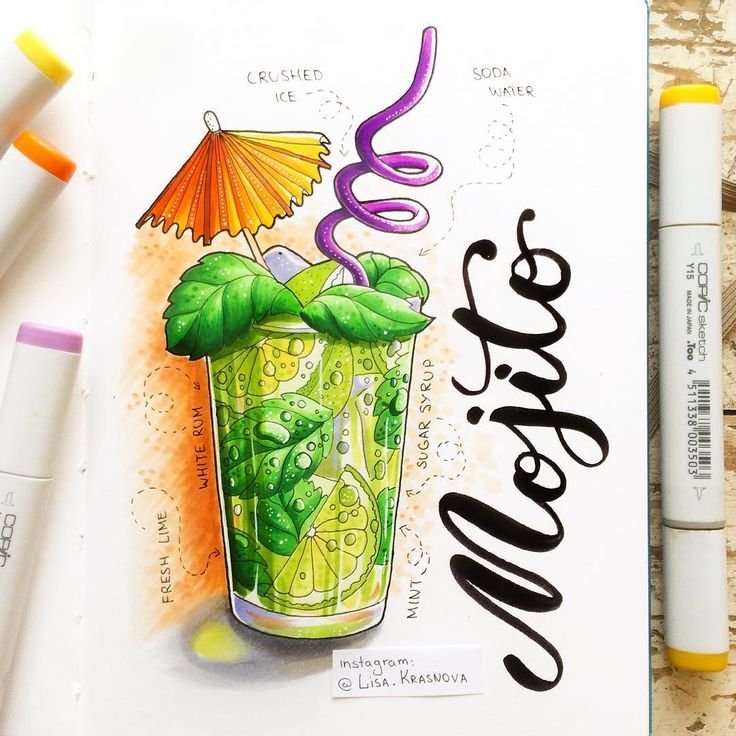 CRUSHED
ICE
SODA
WATER
Mojito
WHITE RUM
SUGAR SYRUP
FRESH LIME
MINT
instagram:
@ LISA.KRASNOVA
COPIC sketch
Y15
MADE IN JAPAN
.Too
4 511338 003503
COPIC